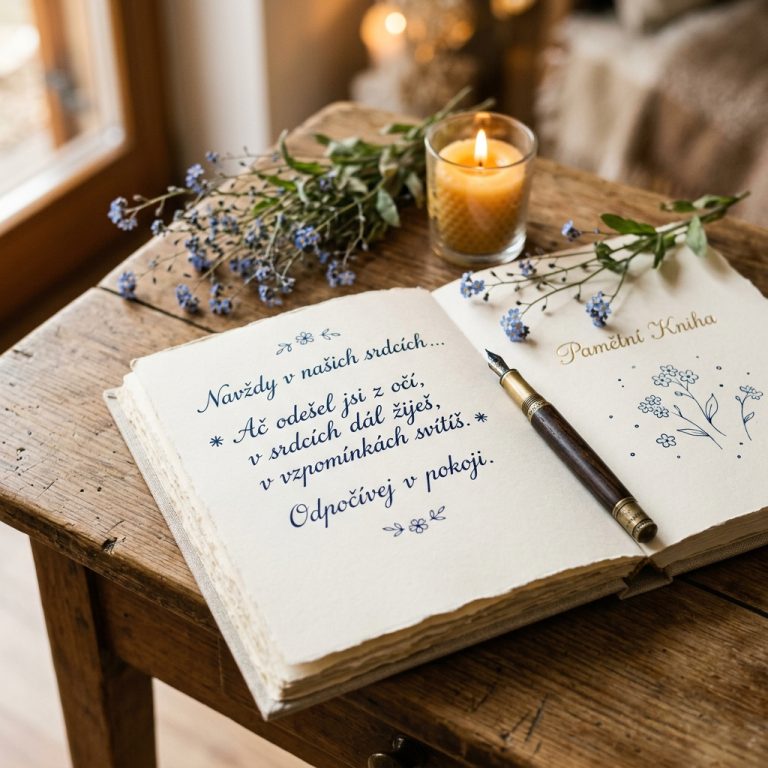 Navždy v našich srdcích...
* Ač odešel jsi z očí,
v srdcích dál žiješ, *
v vzpomínkách svítíš.
Odpočívej v pokoji.
Pamětní Kniha